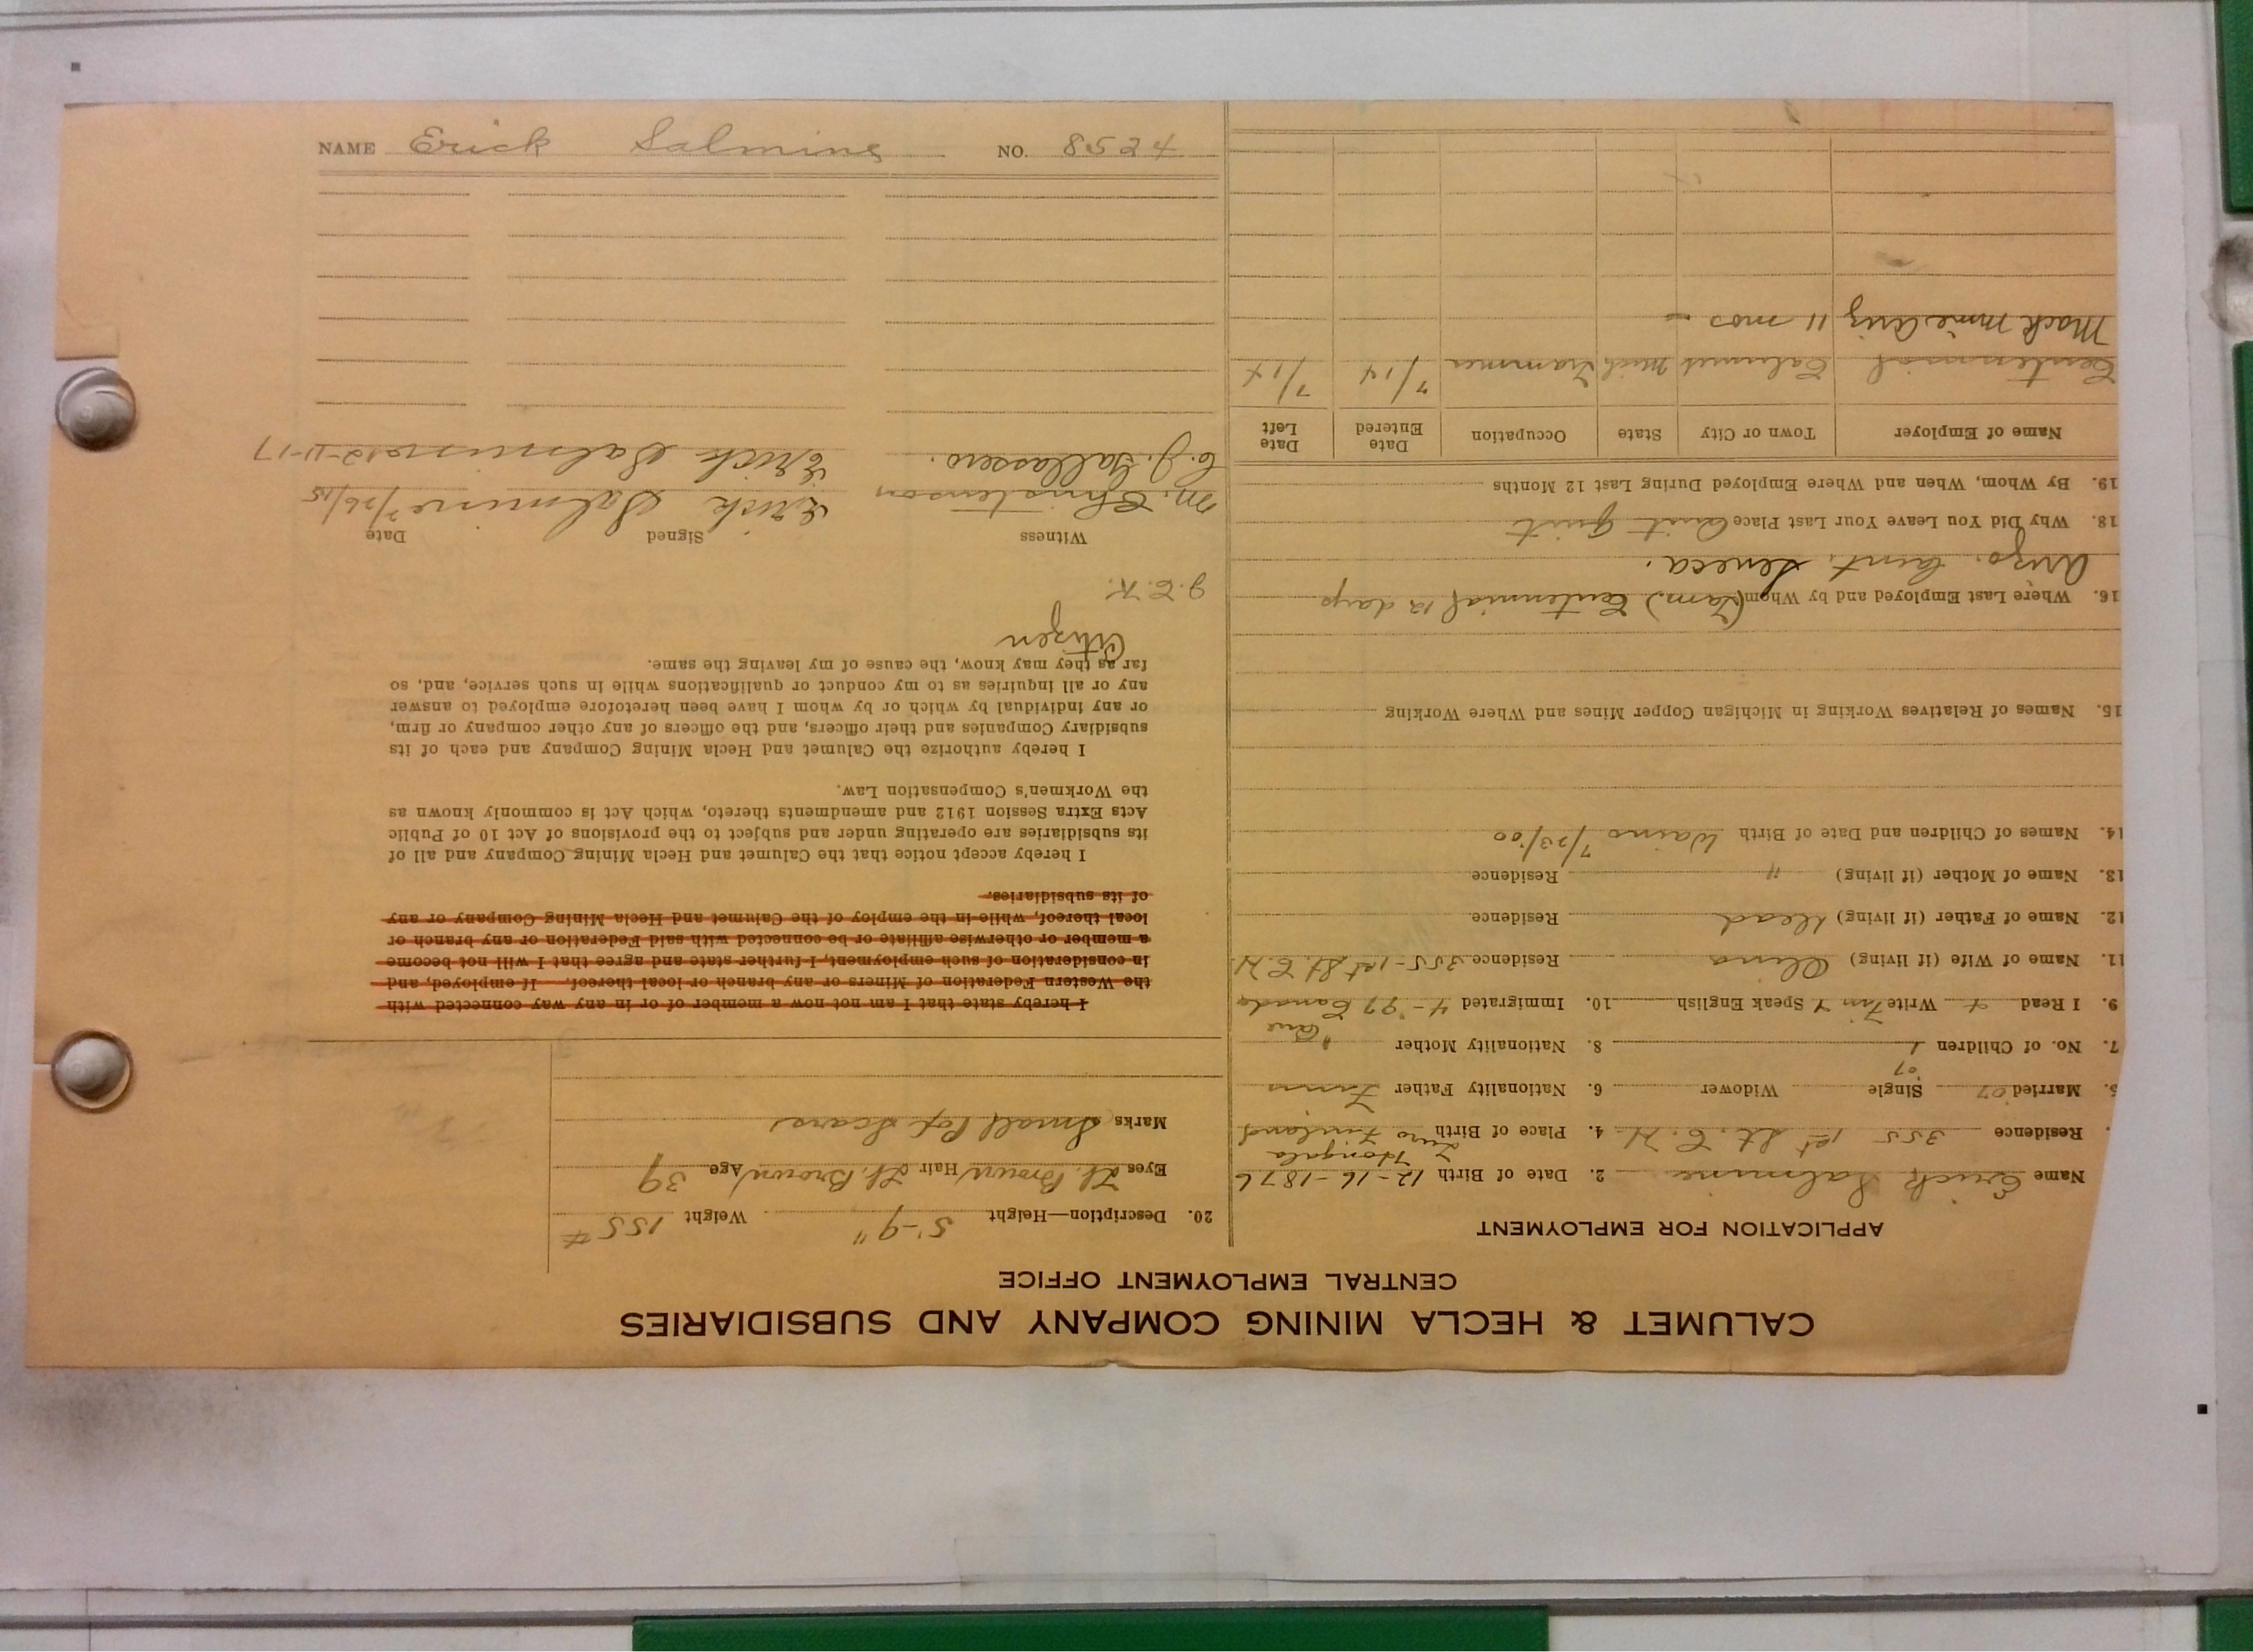 CALUMET & HECLA MINING COMPANY AND SUBSIDIARIES
CENTRAL EMPLOYMENT OFFICE
APPLICATION FOR EMPLOYMENT
Name Erick Salmine 2. Date of Birth 12-16-1876
Residence 355 1st St. C. H. 4. Place of Birth Finland
Married 07 Single Widower 6. Nationality Father Finns
07
7. No. of Children 1 8. Nationality Mother "
9. I Read + Write Finn Speak English 10. Immigrated 4-'99 Canada
11. Name of Wife (if living) Residence 355-1st St. C. H.
12. Name of Father (if living) Dead Residence
13. Name of Mother (if living) " Residence
14. Names of Children and Date of Birth Waino 7/23/00
15. Names of Relatives Working in Michigan Copper Mines and Where Working
16. Where Last Employed and by Whom (Tam.) Centennial 12 days
Seneca.
18. Why Did You Leave Your Last Place Quit quit
19. By Whom, When and Where Employed During Last 12 Months
Name of Employer Town or City State Occupation Date Entered Date Left
Centennial Calumet Mich Trammer 7/14 7/14
Mack Mine Ariz 11 mos
20. Description—Height 5'-9" Weight 155 #
Eyes Lt. Brown Hair Lt. Brown Age 39
Marks Small Scars
I hereby state that I am not now a member of or in any way connected with
the Western Federation of Miners or any branch or local thereof. If employed, and
in consideration of such employment, I further state and agree that I will not become
a member or otherwise affiliate or be connected with said Federation or any branch or
local thereof, while in the employ of the Calumet and Hecla Mining Company or any
of its subsidiaries.
I hereby accept notice that the Calumet and Hecla Mining Company and all of
its subsidiaries are operating under and subject to the provisions of Act 10 of Public
Acts Extra Session 1912 and amendments thereto, which Act is commonly known as
the Workmen's Compensation Law.
I hereby authorize the Calumet and Hecla Mining Company and each of its
subsidiary Companies and their officers, and the officers of any other company or firm,
or any individual by which or by whom I have been heretofore employed to answer
any or all inquiries as to my conduct or qualifications while in such service, and, so
far as they may know, the cause of my leaving the same.
Citizen
J. C. K.
Witness Signed Date
M. Christenson Erick Salmine 7/26/15
Erick Salmine 12-11-17
NAME Erick Salmine NO. 8524